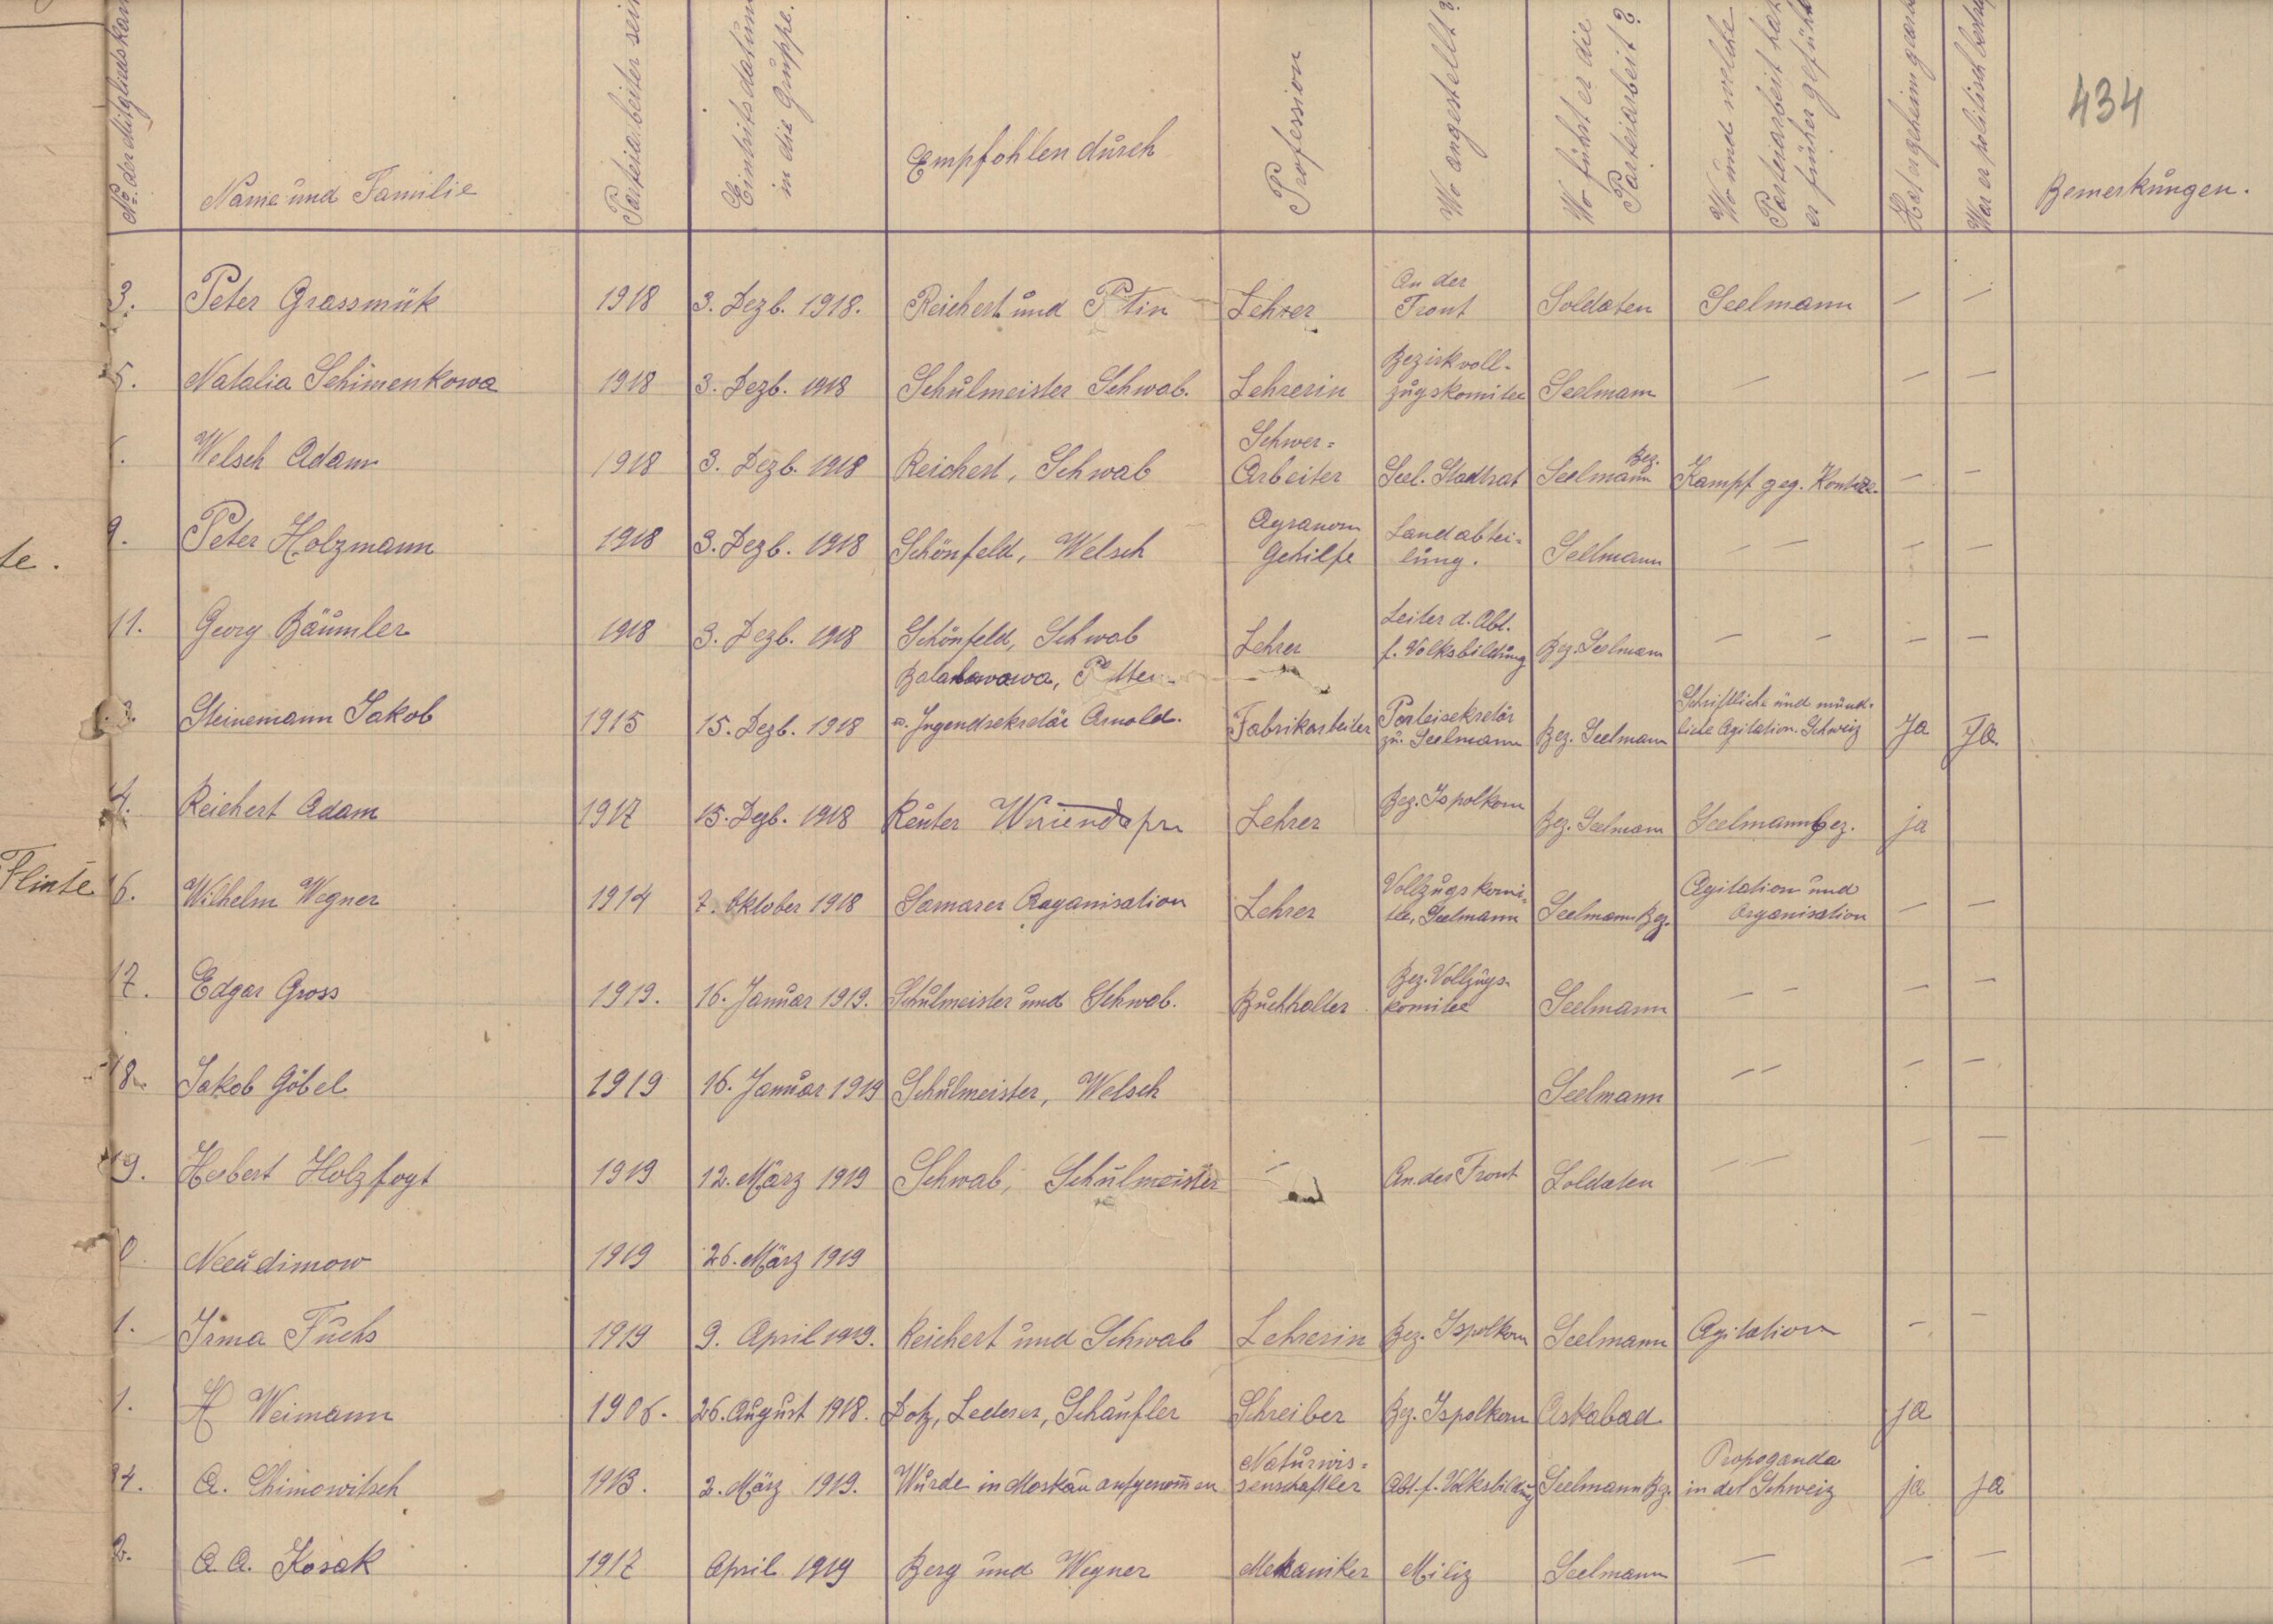 434
No. der Mitgliedskar
Name und Familie
Parteiarbeiter sei
Eintritsdatum
in die Gruppe.
Empfohlen durch
Profession
Wo angestellt?
Wo führt er die
Parteiarbeit?
Wo und welche
Parteiarbeit hat
er früher geführt
Hat er geheim gearb
War er politisch
Bemerkungen.
3. Peter Grassmük 1918 3. Dezb. 1918. Reichert und P tin Lehrer An der
Front Soldaten Seelmann — —
5. Natalia Schimenkowa 1918 3. Dezb. 1918 Schulmeister Schwab. Lehrerin Bezirkvoll-
zugskomitee Seelmann — — —
Welsch Adam 1918 3. Dezb. 1918 Reichert, Schwab Schwer=
Arbeiter Seel. Stadtrat Seelmann Bez. Kampf geg. — —
9. Peter Holzmann 1918 3. Dezb. 1918 Schönfeld, Welsch Agranom
Gehilfe Landabtei=
lung. Seelmann — — — —
11. Georg Bäumler 1918 3. Dezb. 1918 Schönfeld, Schwab Lehrer Leiter d. Abt.
f. Volksbildung Bez. Seelmann — — — —
3. Steinemann Jakob 1915 15. Dezb. 1918 Balabanowa, P tten
u. Jugendsekretär Arnold. Fabrikarbeiter Parteisekretär
zu. Seelmann Bez. Seelmann Schriftliche und münd-
liche Agitation. Schweiz Ja Ja
4. Reichert Adam 1917 15. Dezb. 1918 Reuter Lehrer Bez. Ispolkom Bez. Seelmann Seelmann Bez. ja
Flinte
te.
6. Wilhelm Wegner 1914 7. Oktober 1918 Samarer Organisation Lehrer Vollzugskomi-
tee, Seelmann Seelmann Bez. Agitation und
Organisation — —
17. Edgar Gross 1919. 16. Januar 1919. Schulmeister und Schwab. Buchhalter Bez. Vollzugs-
komitee Seelmann — — — —
18. Jakob Göbel 1919 16. Januar 1919 Schulmeister, Welsch Seelmann — — — —
19. Herbert Holzfogt 1919 12. März 1919 Schwab, Schulmeister — An der Front Soldaten — — — —
0. Neeudimow 1919 26. März 1919
1. Irma Fuchs 1919 9. April 1919. Reichert und Schwab Lehrerin Bez. Ispolkom Seelmann Agitation — —
1. H Weimann 1906. 26. August 1918. Dotz, Lederer, Schaufler Schreiber Bez. Ispolkom Askabad ja
4. A. Chimowitsch 1913. 2. März 1919. Wurde in Moskau aufgenommen Naturwis=
senschaftler Abt. f. Volksbildung Seelmann Bz. Propoganda
in der Schweiz ja ja
2. A. A. Kosak 1917 April 1919 Berg und Wegner Mekaniker Miliz Seelmann — — —